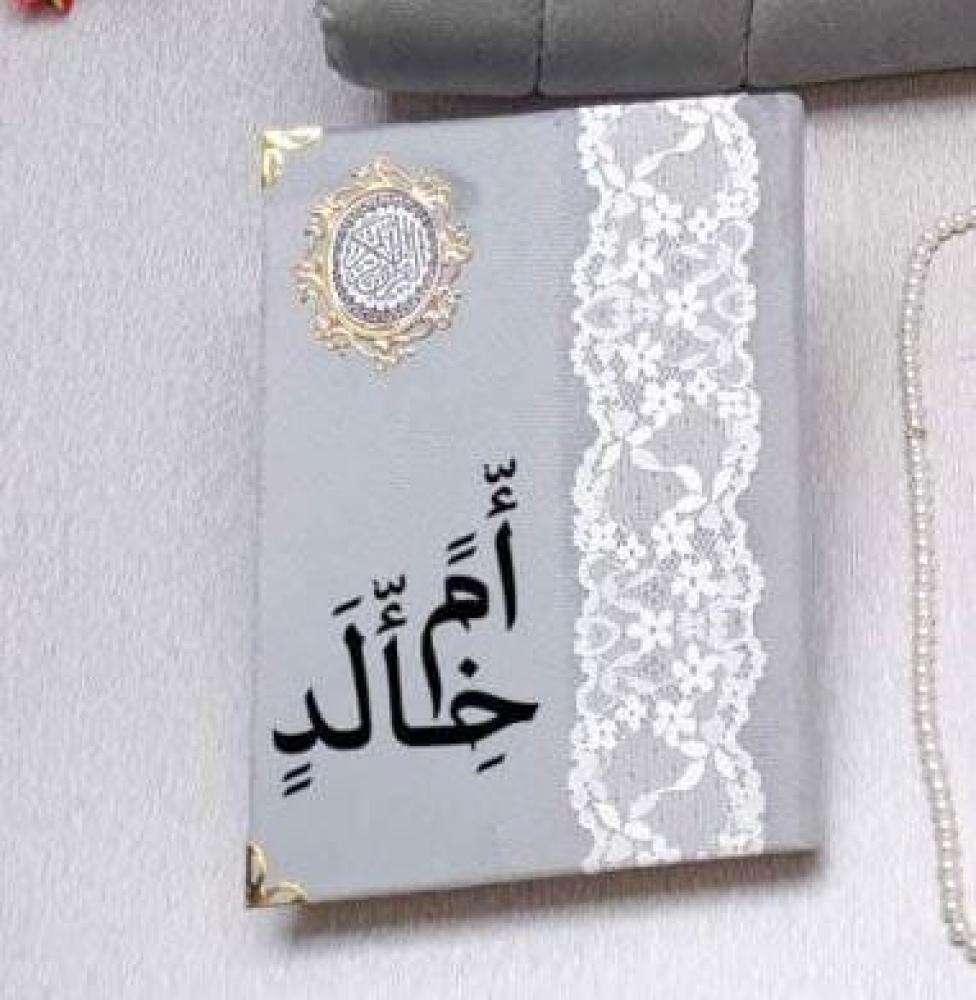 القرآن الكريم
أّمً
خِأّلَدٍ